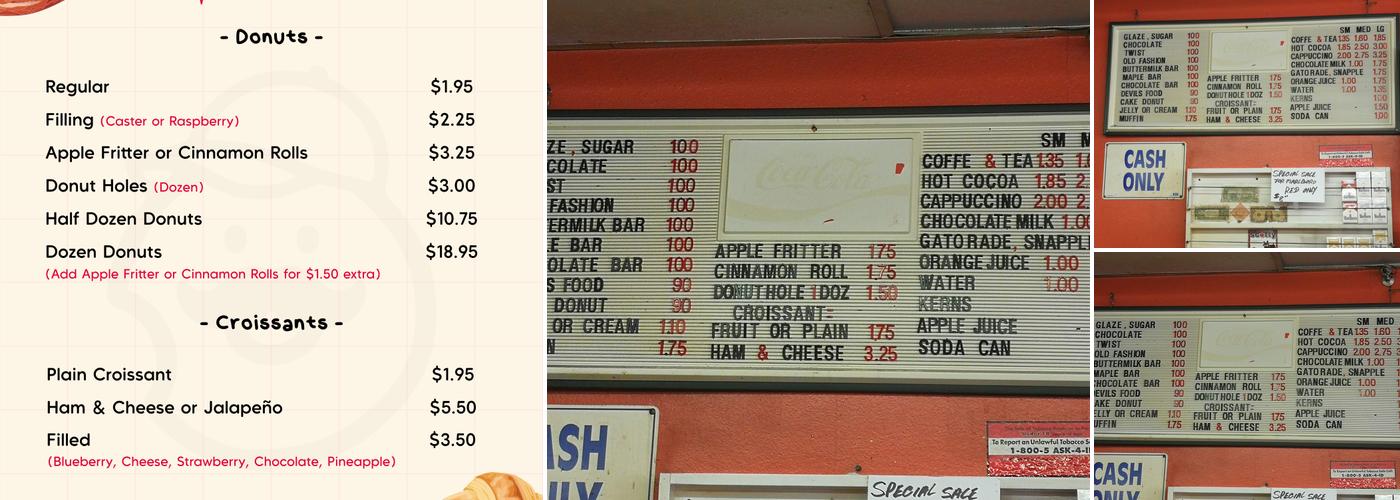 - Donuts -
Regular $1.95
Filling (Caster or Raspberry) $2.25
Apple Fritter or Cinnamon Rolls $3.25
Donut Holes (Dozen) $3.00
Half Dozen Donuts $10.75
Dozen Donuts $18.95
(Add Apple Fritter or Cinnamon Rolls for $1.50 extra)
- Croissants -
Plain Croissant $1.95
Ham & Cheese or Jalapeño $5.50
Filled $3.50
(Blueberry, Cheese, Strawberry, Chocolate, Pineapple)
ZE, SUGAR 100
COLATE 100
ST 100
FASHION 100
ERMILK BAR 100
E BAR 100
OLATE BAR 100
S FOOD 90
DONUT 90
OR CREAM 1.10
N 1.75
Coca-Cola
APPLE FRITTER 175
CINNAMON ROLL 1.75
DONUTHOLE 1DOZ 1.50
CROISSANT:
FRUIT OR PLAIN 175
HAM & CHEESE 3.25
SM M
COFFE & TEA 135 1.6
HOT COCOA 1.85 2.
CAPPUCCINO 2.00 2.
CHOCOLATE MILK 1.00
GATORADE, SNAPPL
ORANGE JUICE 1.00
WATER 1.00
KERNS
APPLE JUICE -
SODA CAN
ASH
NLY
To Report an Unlawful Tobacco S
1-800-5 ASK-4-I
SPECIAL SALE
GLAZE, SUGAR 100
CHOCOLATE 100
TWIST 100
OLD FASHION 100
BUTTERMILK BAR 100
MAPLE BAR 100
CHOCOLATE BAR 100
DEVILS FOOD 90
CAKE DONUT 90
JELLY OR CREAM 1.10
MUFFIN 1.75
APPLE FRITTER 175
CINNAMON ROLL 1.75
DONUTHOLE 1DOZ 1.50
CROISSANT:
FRUIT OR PLAIN 175
HAM & CHEESE 3.25
SM MED LG
COFFE & TEA 135 1.60 1.85
HOT COCOA 1.85 2.50 3.00
CAPPUCCINO 2.00 2.75 3.25
CHOCOLATE MILK 1.00 1.75
GATORADE, SNAPPLE 1.75
ORANGE JUICE 1.00 1.75
WATER 1.00 1.35
KERNS
APPLE JUICE 1.50
SODA CAN 1.00
CASH
ONLY
1-800-5 ASK-4-ID
SPECIAL SALE
FOR MARLBORO
RED ONLY
GLAZE, SUGAR 100
CHOCOLATE 100
TWIST 100
OLD FASHION 100
BUTTERMILK BAR 100
MAPLE BAR 100
CHOCOLATE BAR 100
DEVILS FOOD 90
AKE DONUT 90
ELLY OR CREAM 1.10
UFFIN 1.75
APPLE FRITTER 175
CINNAMON ROLL 1.75
DONUTHOLE 1DOZ 1.50
CROISSANT:
FRUIT OR PLAIN 175
HAM & CHEESE 3.25
SM MED
COFFE & TEA 135 1.60
HOT COCOA 1.85 2.50
CAPPUCCINO 2.00 2.75
CHOCOLATE MILK 1.00
GATORADE, SNAPPLE
ORANGE JUICE 1.00
WATER 1.00
KERNS
APPLE JUICE -
SODA CAN
CASH
ONLY
To Report an Unlawful Tobacco
1-800-5 ASK-4-ID
SPECIAL SALE